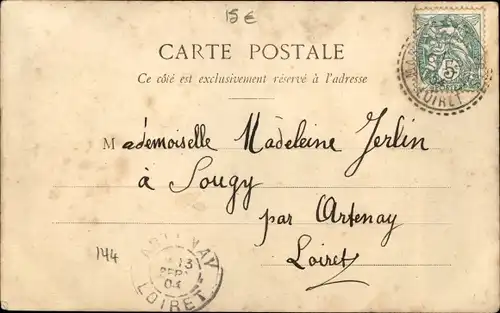 15 €
CARTE POSTALE
Ce côté est exclusivement réservé à l'adresse
5
LOIRET
Mademoiselle Madeleine Jerlin
à Sougy
par Artenay
Loiret
144
ARTENAY
13
04
LOIRET